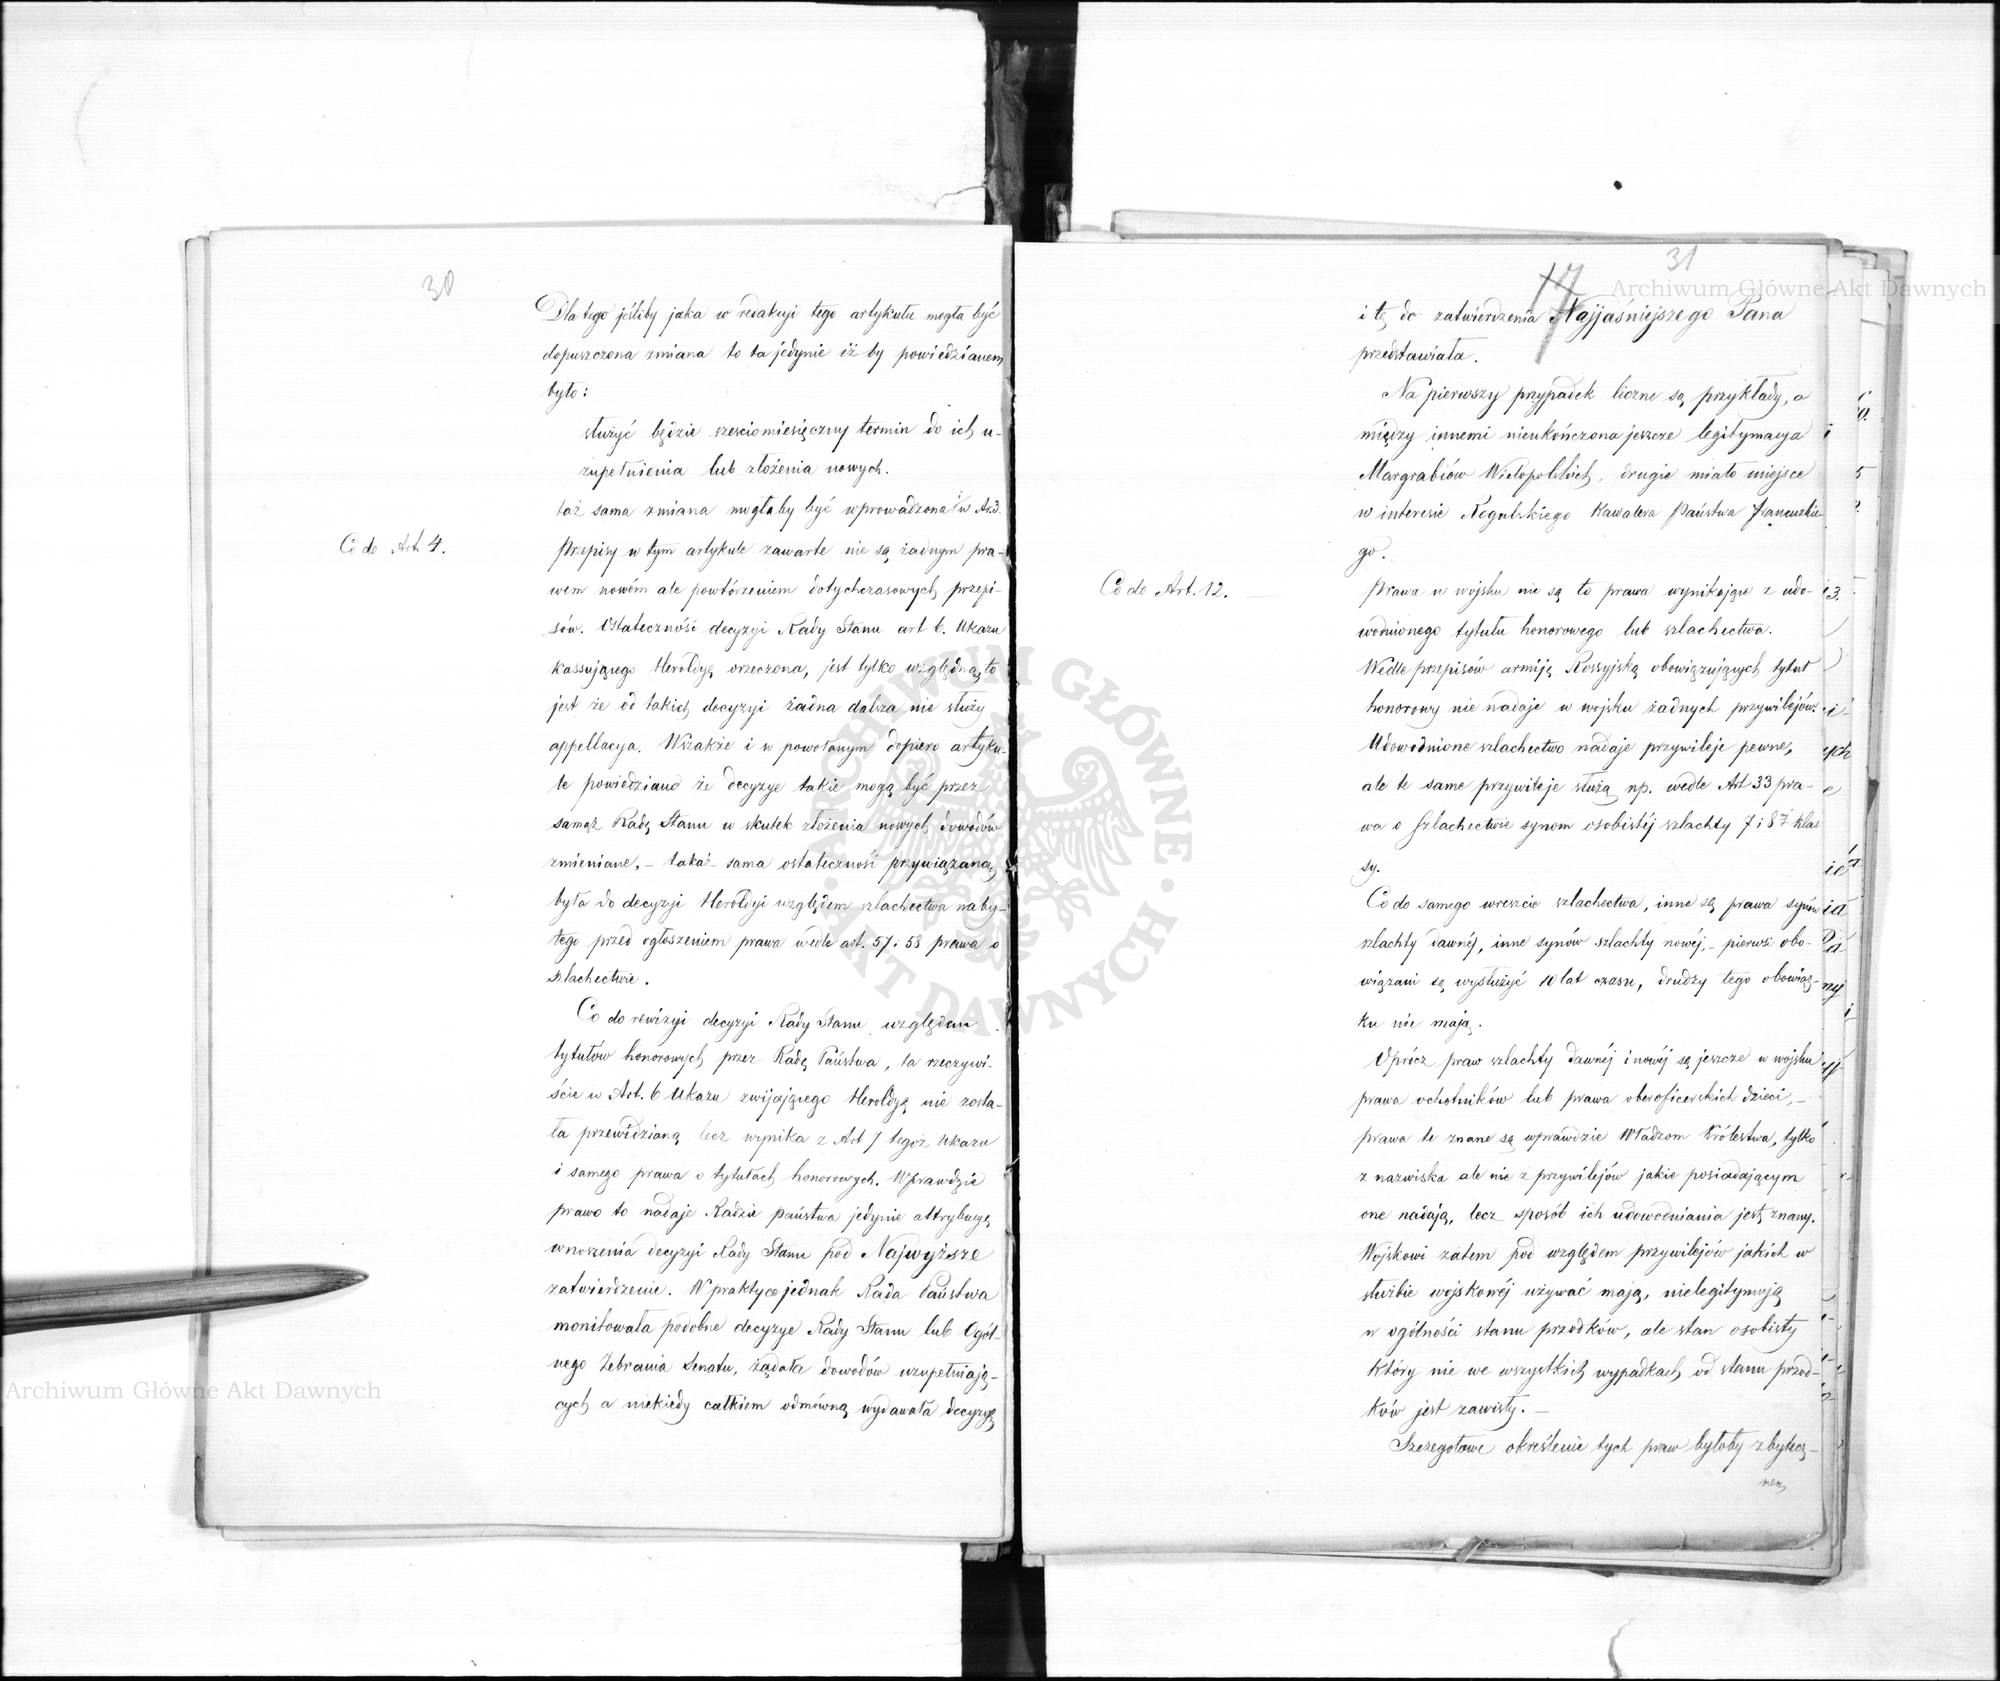 30
Dla tego jeśliby jaka w redakcyi tego artykułu mogła być
dopuszczona zmiana to ta jedynie iż by powiedzianem
było:
służyć będzie sześciomiesięczny termin do ich u-
zupełnienia lub złożenia nowych.
taż sama zmiana mogłaby być wprowadzona i w Ar. 3.
Co do Art. 4.
Przepisy w tym artykule zawarte nie są żadnym pra-
wem nowém ale powtórzeniem dotychczasowych przepi-
sów. Ostateczność decyzyi Rady Stanu art 6. Ukazu
kassującego Heroldyą orzeczona, jest tylko względną, to
jest że od takich decyzyi żadna dalsza nie służy
appellacya. Wszakże i w powołanym dopiero artyku-
le powiedziano że decyzye takie mogą być przez
samąż Radę Stanu w skutek złożenia nowych dowodów
zmieniane, – takaż sama ostateczność przywiązaną
była do decyzyi Heroldyi względem szlachectwa naby-
tego przed ogłoszeniem prawa wedle art. 57 i 58 prawa o
szlachectwie.
Co do rewizyi decyzyi Rady Stanu względem
tytułów honorowych przez Radę Państwa, ta rzeczywi-
ście w Art. 6 Ukazu zwijającego Heroldyą nie zosta-
ła przewidzianą lecz wynika z Art 7 tegoż Ukazu
i samego prawa o tytułach honorowych. Wprawdzie
prawo to nadaje Radzie państwa jedynie attrybucyę
wnoszenia decyzyi Rady Stanu pod Najwyższe
zatwierdzenie. W praktyce jednak Rada Państwa
monitowała podobne decyzye Rady Stanu lub Ogól-
nego Zebrania Senatu, żądała dowodów uzupełniają-
cych a niekiedy całkiem odmówną wydawała decyzyę
31
17
i tę do zatwierdzenia Najjaśniejszego Pana
przedstawiała.
Na pierwszy przypadek liczne są przykłady, a
między innemi nieukończona jeszcze legitymacya
Margrabiów Wielopolskich, drugie miało miejsce
w interesie Regulskiego Kawalera Państwa Francuzkie-
go.
Co do Art. 12.
Prawa w wojsku nie są to prawa wynikające z udo-
wodnionego tytułu honorowego lub szlachectwa.
Wedle przepisów armiją Rossyjską obowiązujących tytuł
honorowy nie nadaje w wojsku żadnych przywilejów.
Udowodnione szlachectwo nadaje przywileje pewne,
ale te same przywileje służą np. wedle Art 33 pra-
wa o Szlachectwie synom osobistéj szlachty 7 i 8éj klas
sy.
Co do samego wreszcie szlachectwa, inne są prawa synów
szlachty dawnéj, inne synów szlachty nowéj, – pierwsi obo-
wiązani są wysłużyć 10 lat czasu, drudzy tego obowiąz-
ku nie mają.
Oprócz praw szlachty dawnéj i nowéj są jeszcze w wojsku
prawa ochotników lub prawa oberoficerskich dzieci, –
prawa te znane są wprawdzie Władzom Królestwa, tylko
z nazwiska ale nie z przywilejów jakie posiadającym
one nadają, lecz sposób ich udowodniania jest znany.
Wojskowi zatem pod względem przywilejów jakich w
służbie wojskowéj używać mają, nielegitymują
w ogólności stanu przodków, ale stan osobisty
który nie we wszystkich wypadkach od stanu przod-
ków jest zawisły. –
Szczegółowe określenie tych praw byłoby zbytecz-
nem
Archiwum Główne Akt Dawnych
Archiwum Główne Akt Dawnych
ARCHIWUM GŁÓWNE
AKT DAWNYCH